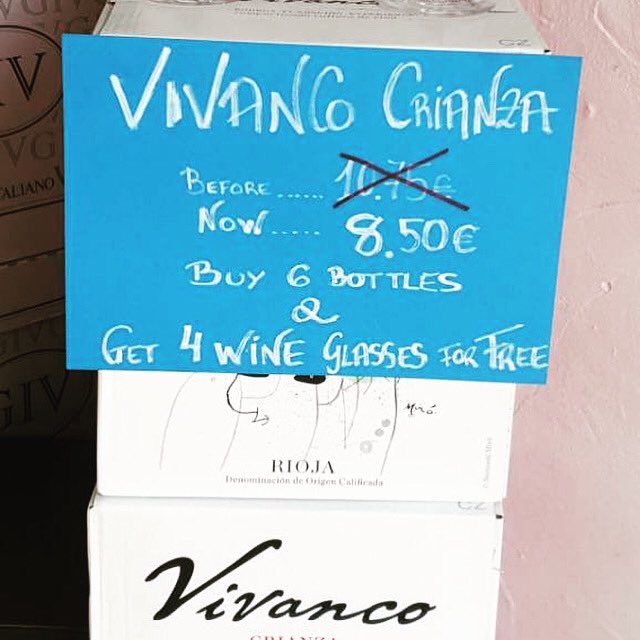 VIVANCO CRIANZA
BEFORE...... 10.75€
NOW..... 8.50€
BUY 6 BOTTLES
&
GET 4 WINE GLASSES FOR FREE
GIV
VG
TALIANO
GIV
Miró.
RIOJA
Denominación de Origen Calificada
Vivanco
CRIANZA